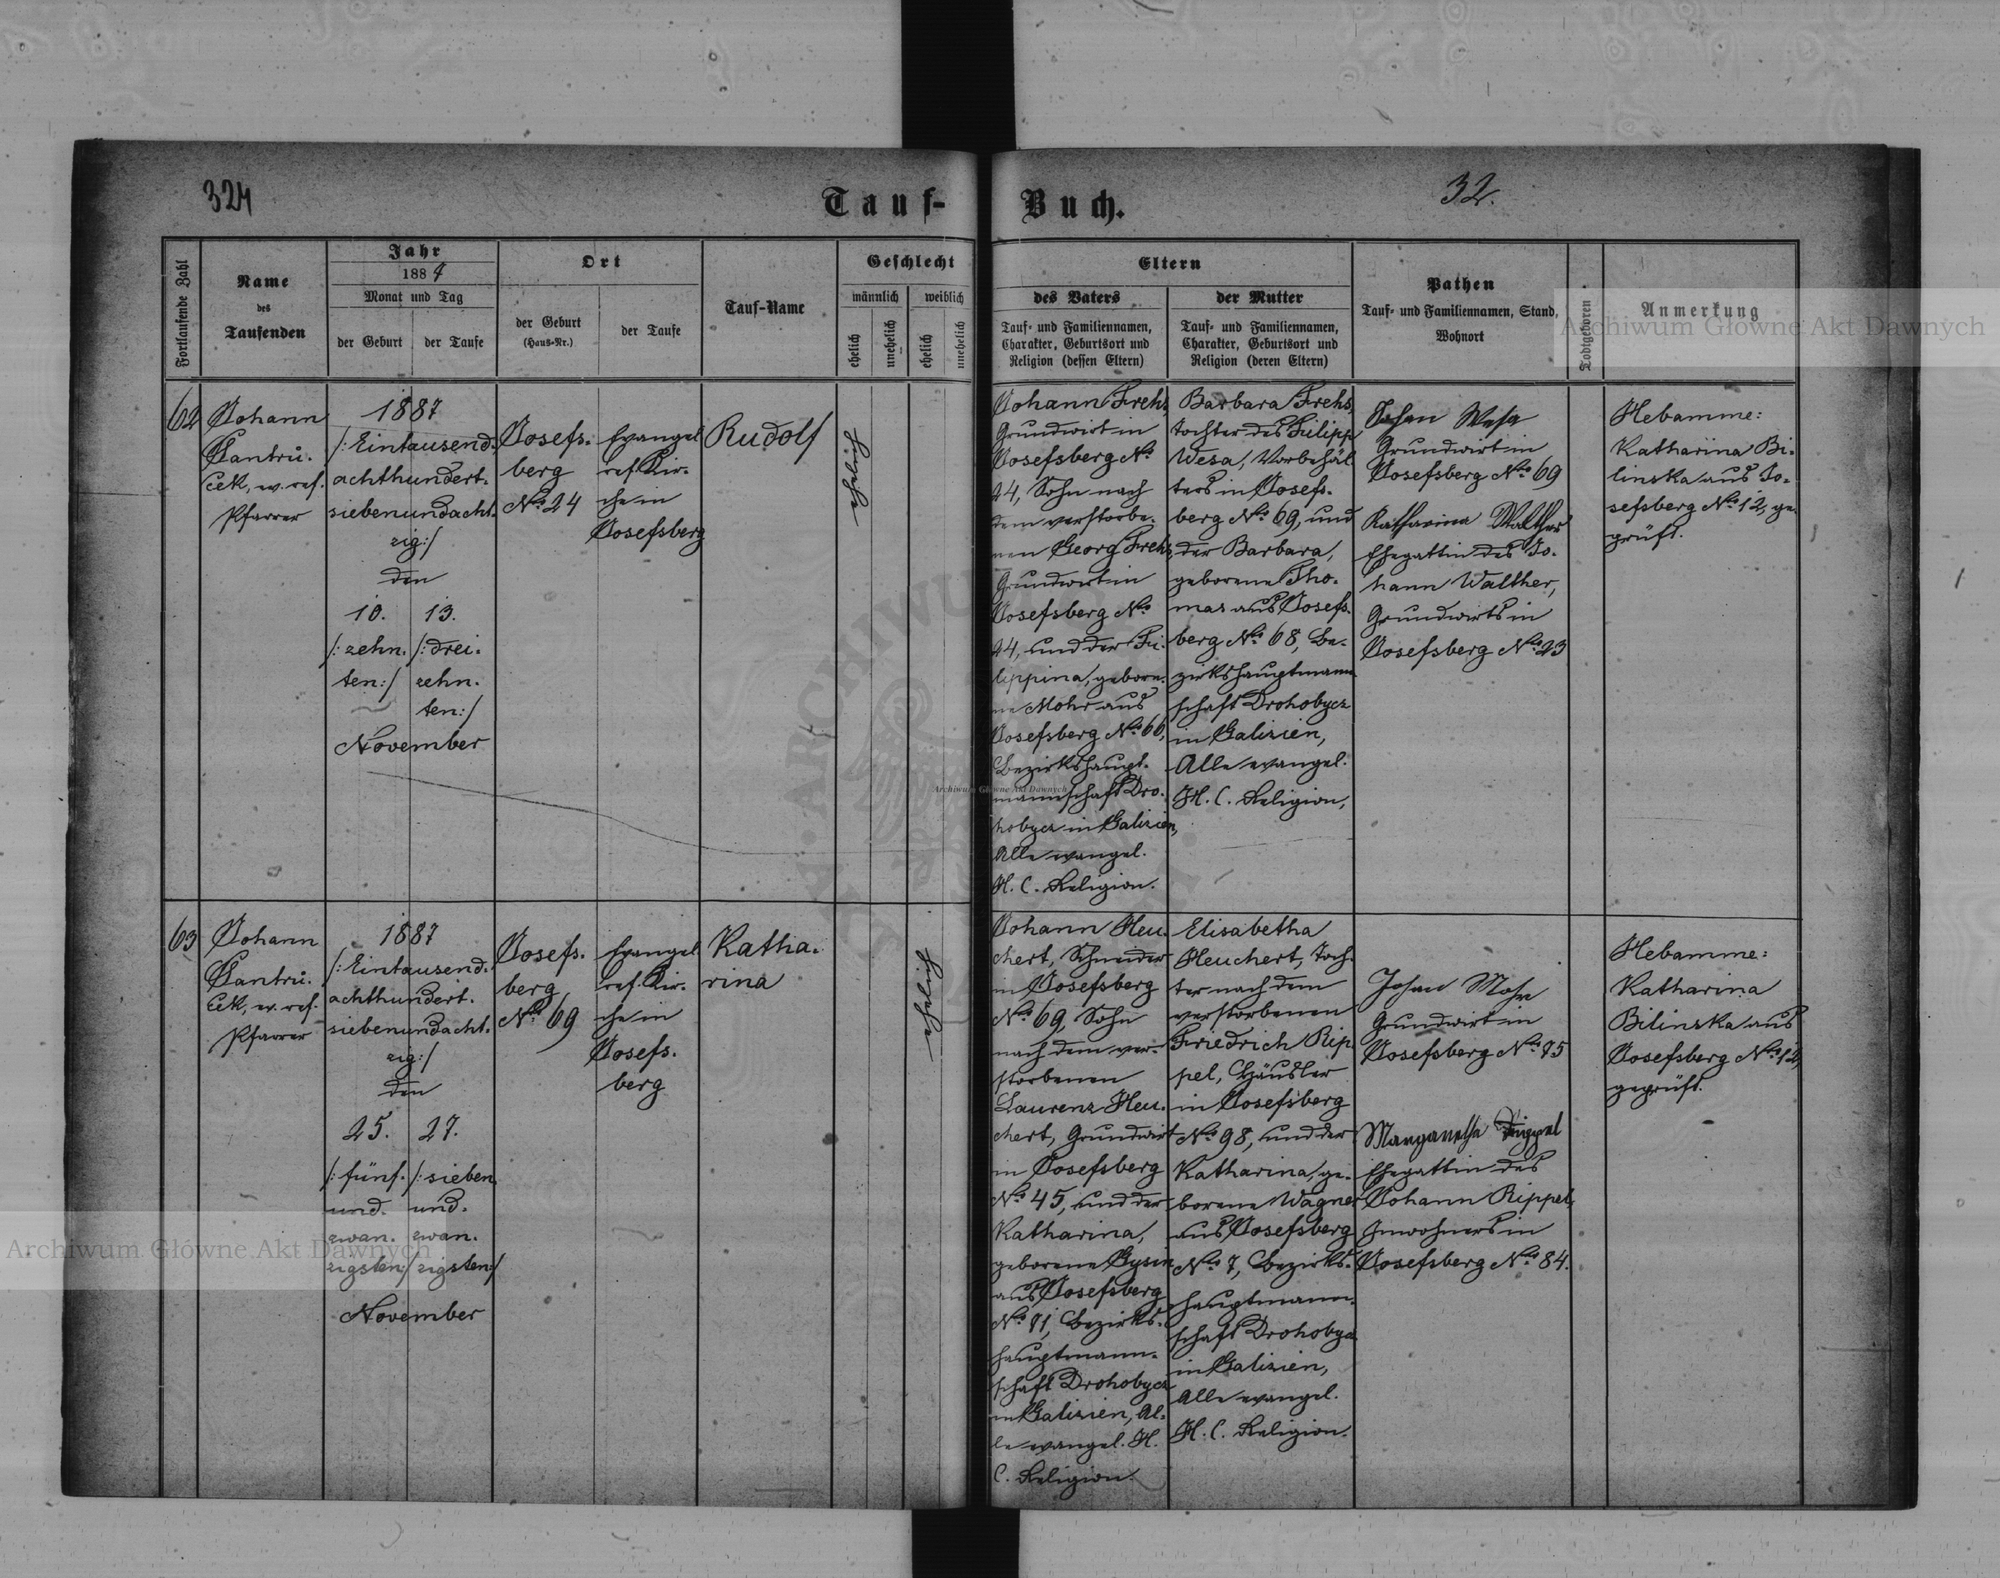 324
Tauf-
Buch.
32.
Fortlaufende Zahl
Name
des
Taufenden
Jahr
1887
Monat und Tag
der Geburt
der Taufe
Ort
der Geburt
(Haus-Nr.)
der Taufe
Tauf-Name
Geschlecht
männlich
weiblich
ehelich
unehelich
ehelich
unehelich
Eltern
des Vaters
Tauf- und Familiennamen,
Charakter, Geburtsort und
Religion (dessen Eltern)
der Mutter
Tauf- und Familiennamen,
Charakter, Geburtsort und
Religion (deren Eltern)
Pathen
Tauf- und Familiennamen, Stand,
Wohnort
Todtgeboren
Anmerkung
62
Johann
Jantru-
cek, ev. ref.
Pfarrer
1887
/:Eintausend-
achthundert-
siebenundacht-
zig:/
den
10.
/:zehn-
ten:/
13.
/:drei-
zehn-
ten:/
November
Josefs-
berg
No. 24
Evangel
ref. Kir-
che in
Josefsberg
Rudolf
ehelich
Johann Frehs,
Grundwirt in
Josefsberg No.
24, Sohn nach
dem verstorbe-
nen Georg Frehs,
Grundwirt in
Josefsberg No.
24, und der Fi-
lippina, gebore-
ne Mohr aus
Josefsberg No. 66,
Bezirkshaupt-
mannschaft Dro-
hobycz in Galizien,
Alle evangel.
H. C. Religion.
Barbara Frehs,
Tochter des Filipp
Wesa, Vorbehäl-
ters in Josefs-
berg No. 69, und
der Barbara,
geborene Tho-
mas aus Josefs-
berg No. 68, Be-
zirkshauptmann-
schaft Drohobycz
in Galizien,
Alle evangel.
H. C. Religion,
Johan Wesa
Grundwirt in
Josefsberg No. 69
Katharina Walther
Ehegattin des Jo-
hann Walther,
Grundwirts in
Josefsberg No. 23
Hebamme:
Katharina Bi-
linska aus Jo-
sefsberg No. 12, ge-
prüft.
63
Johann
Jantru-
cek, ev. ref.
Pfarrer
1887
/:Eintausend-
achthundert-
siebenundacht-
zig:/
den
25.
/:fünf-
und-
zwan-
zigsten:/
27.
/:sieben
und-
zwan-
zigsten:/
November
Josefs-
berg
No. 69
Evangel
ref. Kir-
che in
Josefs-
berg
Katha-
rina
ehelich
Johann Heu-
chert, Schneider
in Josefsberg
No. 69, Sohn
nach dem ver-
storbenen
Laurenz Heu-
chert, Grundwirt
in Josefsberg
No. 45, und der
Katharina,
geborene Gysin
aus Josefsberg
No. 71, Bezirks-
hauptmann-
schaft Drohobycz
in Galizien, Al-
le evangel. H.
C. Religion.
Elisabetha
Heuchert, Toch-
ter nach dem
verstorbenen
Friedrich Rip-
pel, Häusler
in Josefsberg
No. 98, und der
Katharina, ge-
borene Wagner
aus Josefsberg
No. 7, Bezirks-
hauptmann-
schaft Drohobycz
in Galizien,
Alle evangel.
H. C. Religion.
Johan Mohr
Grundwirt in
Josefsberg No. 75
Ehegattin des
Johann Rippel,
Inwohners in
Josefsberg No. 84.
Hebamme:
Katharina
Bilinska aus
Josefsberg No. 12,
geprüft.
Archiwum Główne Akt Dawnych
Archiwum Główne Akt Dawnych
Archiwum Główne Akt Dawnych